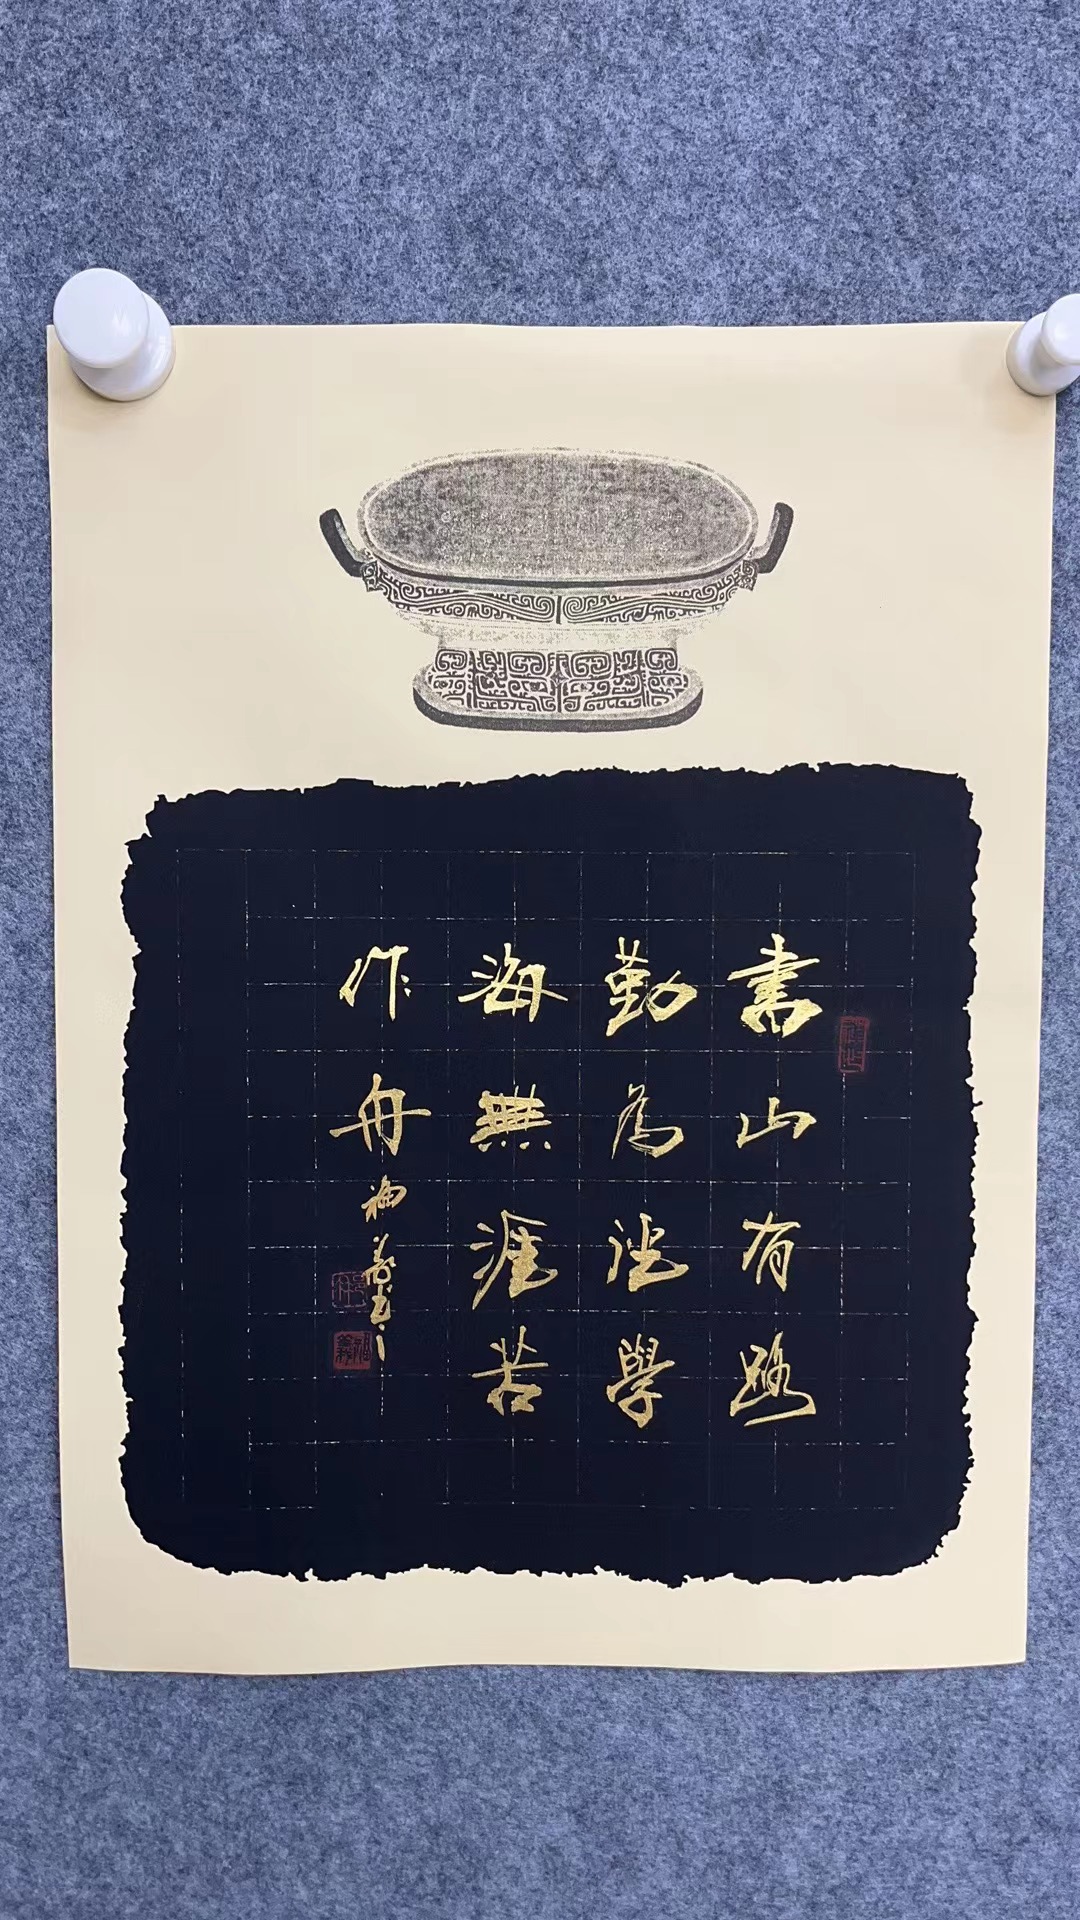 書山有路
勤為徑學
海無涯苦
作舟
福義